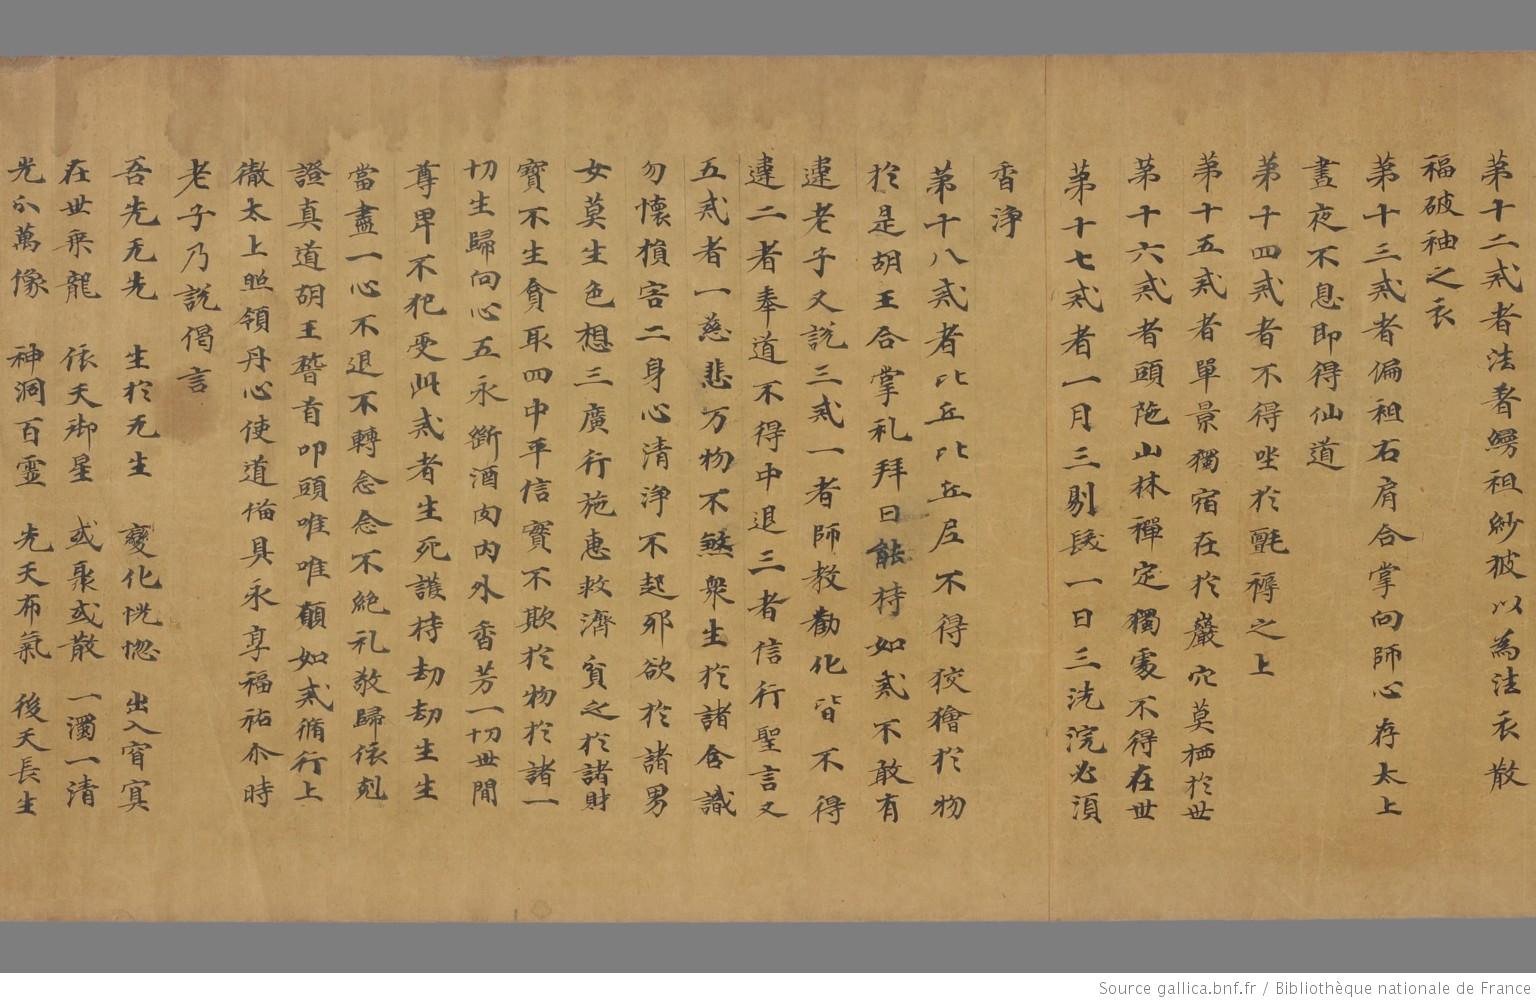 第十二戒者法著鰐祖紗披以為法衣散
福破袖之衣
第十三戒者偏袒右肩合掌向師心存太上
晝夜不息即得仙道
第十四戒者不得坐於氈褥之上
第十五戒者單景獨宿在於巖穴莫栖於世
第十六戒者頭陁山林禪定獨處不得在世
第十七戒者一月三剔髮一日三洗浣必須
香淨
第十八戒者比丘比丘尼不得狡獪於物
於是胡王合掌礼拜曰能持如戒不敢有
違老子又說三戒一者師教勸化皆不得
違二者奉道不得中退三者信行聖言又
五戒者一慈悲万物不煞衆生於諸含識
勿懷損害二身心清淨不起邪欲於諸男
女莫生色想三廣行施惠救濟貧乏於諸財
寶不生貪取四中平信實不欺於物於諸一
切生歸向心五永斷酒肉內外香芳一切世間
尊卑不犯受此戒者生死護持劫劫生生
當盡一心不退不轉念念不絶礼敬歸依剋
證真道胡王稽首叩頭唯唯願如戒脩行上
徹太上照領丹心使道俗具永享福祐尒時
老子乃說偈言
吾先无先 生於无生 變化恍惚 出入窅冥
在世乘龍 依天御星 或聚或散 一濁一清
光仦萬像 神洞百靈 先天布氣 後天長生
Source gallica.bnf.fr / Bibliothèque nationale de France